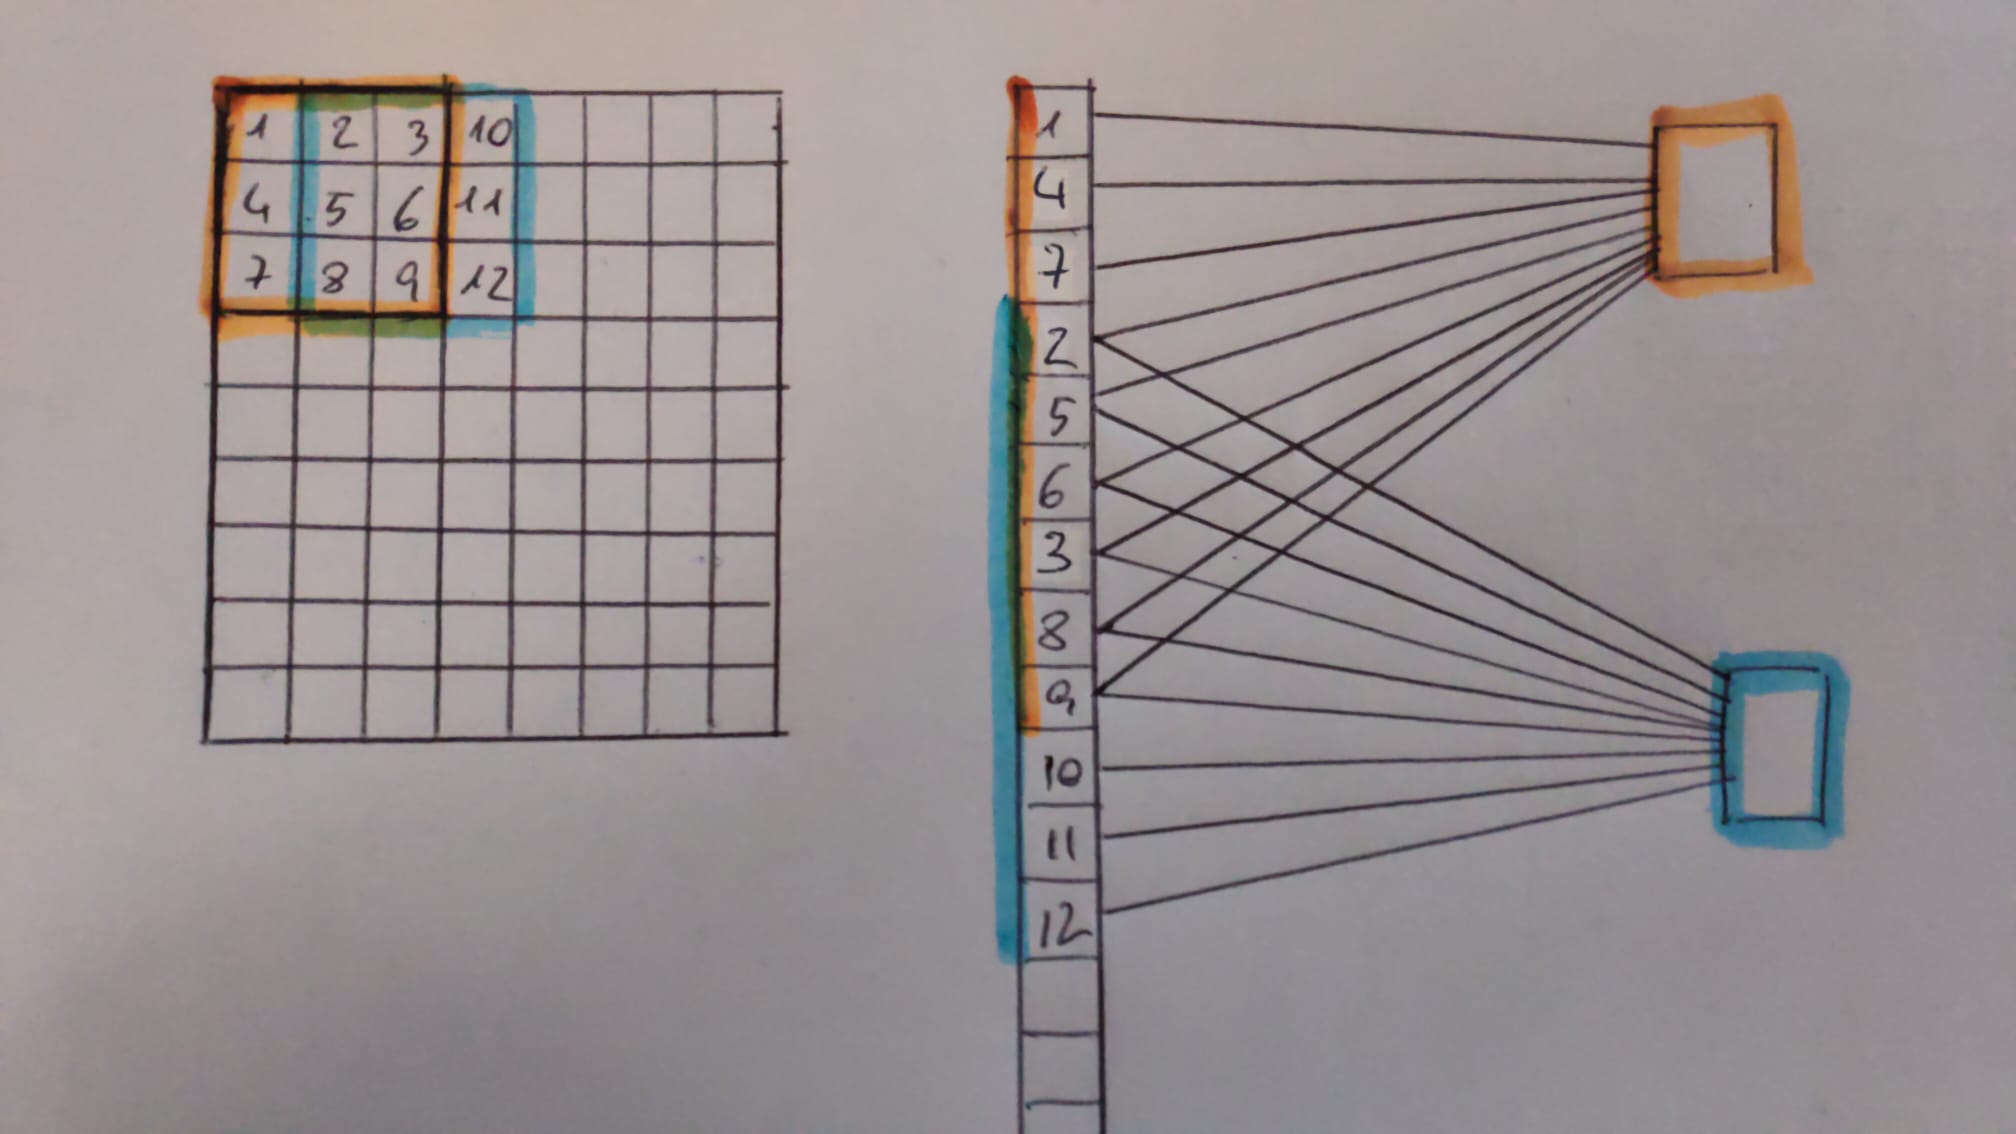 1 2 3 10
4 5 6 11
7 8 9 12
1
4
7
2
5
6
3
8
9
10
11
12